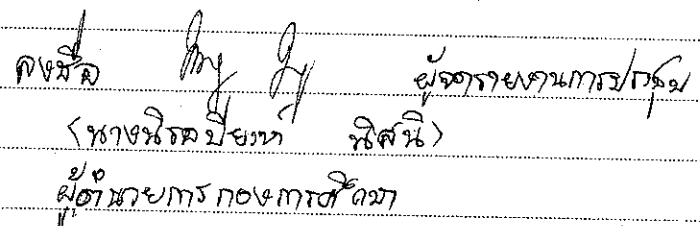 ลงชื่อ ผู้จดรายงานการประชุม
(นาง นิสนี)
ผู้อำนวยการกองการศึกษา